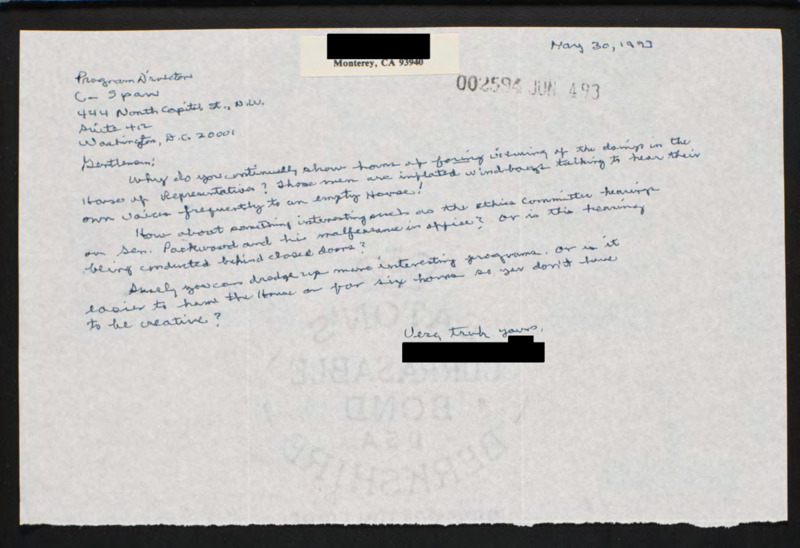 May 30, 1993
Monterey, CA 93940
002594 JUN 4 93
Program Director
C-Span
444 North Capitol St., N.W.
Suite 412
Washington, D.C. 20001
Gentlemen:
Why do you continually show hours of boring viewing of the doings in the
House of Representatives? Those men are inflated wind-bags talking to hear their
own voices frequently to an empty House!
How about something interesting such as the ethics committee hearings
on Sen. Packwood and his malfeasance in office? Or is this hearing
being conducted behind closed doors?
Surely you can dredge up more interesting programs. Or is it
easier to have the House on for six hours so you don't have
to be creative?
Very truly yours,
EATON'S
CORRASABLE
BOND
U.S.A.
BERKSHIRE